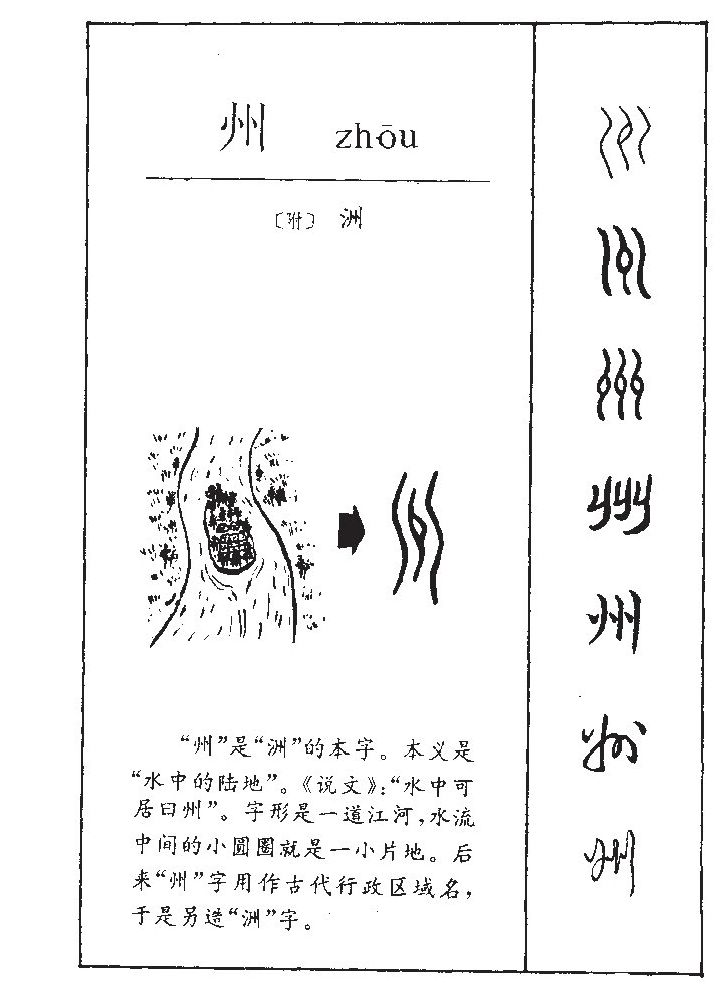 州 zhōu
〔附〕 洲
“州”是“洲”的本字。本义是
“水中的陆地”。《说文》:“水中可
居曰州”。字形是一道江河,水流
中间的小圆圈就是一小片地。后
来“州”字用作古代行政区域名,
于是另造“洲”字。
州
州
州
州
州
州
州